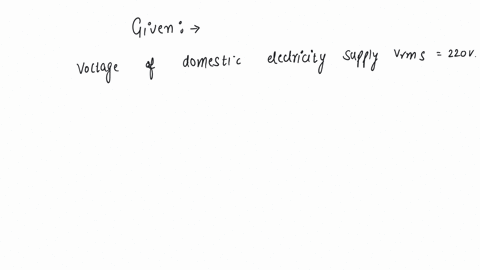 Given: →
Voltage of domestic electricity supply Vrms = 220V.